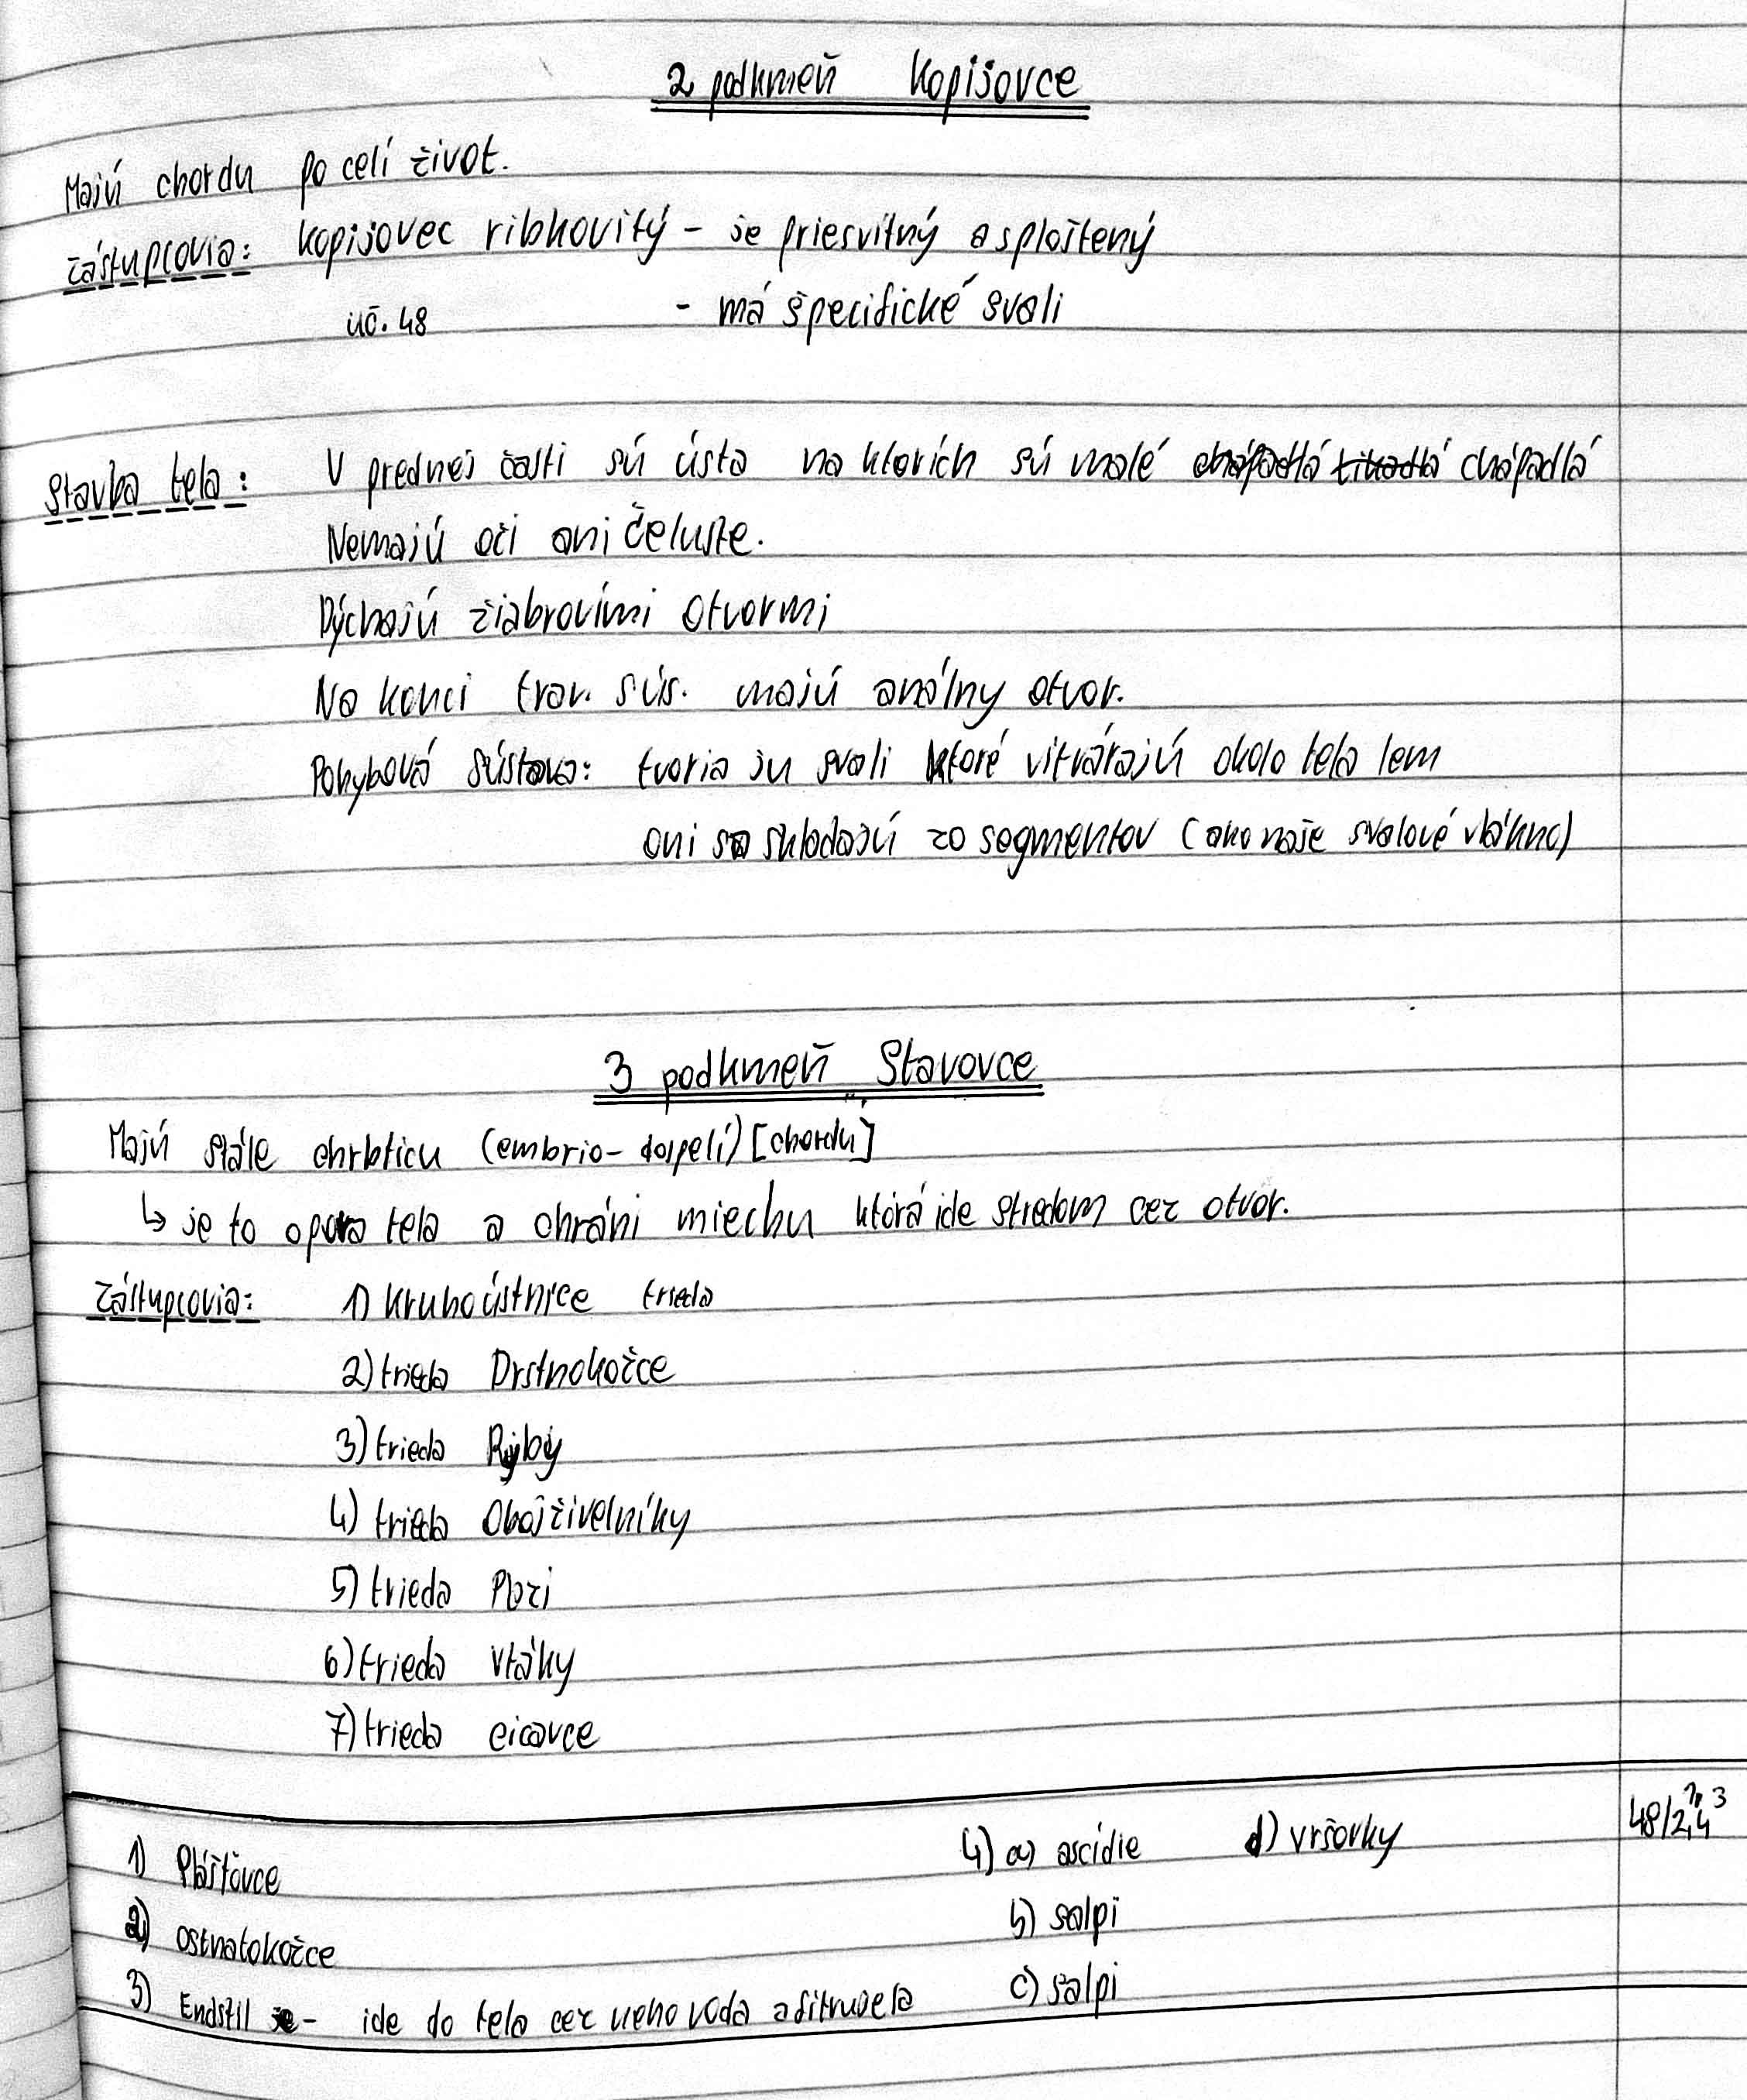 2 podkmeň Kopijovce
Majú chordu po celí život.
Zástupcovia: Kopijovec ribkovitý - je priesvitný a sploštený
uč. 48 - má špecifické svali
Stavba tela: V prednej časti sú ústa na ktorích sú malé chápadlá tikadlá chápadlá
Nemajú oči ani čeluste.
Dýchajú žiabrovími otvormi
Na konci trav. sús. majú análny otvor.
Pohybová sústava: tvoria ju svali ktoré vitvárajú okolo tela lem
oni sa skladajú zo segmentov (ako naše svalové vlákno)
3 podkmeň Stavovce
Majú stále chrbticu (embrio - dospelí) [chordu]
↳ je to opora tela a chráni miechu ktorá ide stredom cez otvor.
Zástupcovia: 1) Kruhoústnice trieda
2) trieda Drstnokožce
3) trieda Ryby
4) trieda Obojživelníky
5) trieda Plazi
6) trieda Vtáky
7) trieda cicavce
48/2,4 3
1) Plášťovce 4) a) ascídie d) vršovky
2) ostnatokožce b) salpi
3) Endstil je - ide do tela cez neho voda a fitruje la c) salpi